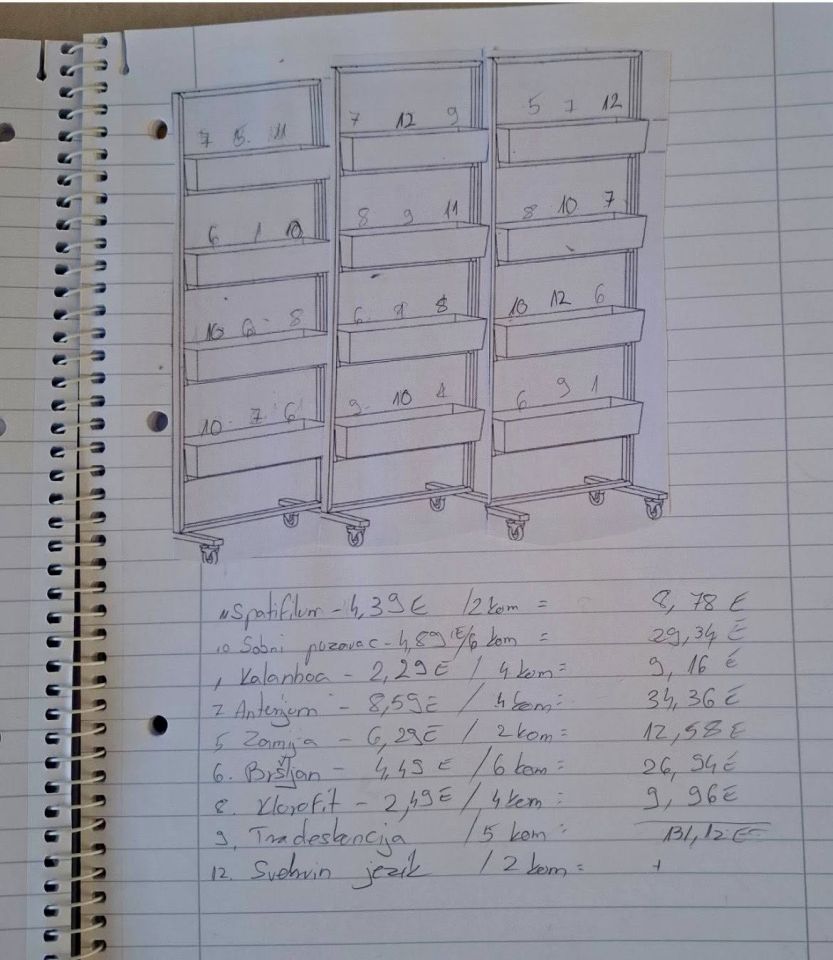 7 5 11
7 12 9
5 7 12
6 1 10
8 9 11
8 10 7
10 6 8
6 1 8
10 12 6
10 7 6
9 10 4
6 9 1
11 Spatifilum - 4,39 € /2 kom = 8,78 €
10 Sobni puzavac - 4,89 €/6 kom = 29,34 €
1 Kalanhoa - 2,29 € / 4 kom = 9,16 €
7 Anterijum - 8,59 € / 4 kom = 34,36 €
5 Zamija - 6,29 € / 2 kom = 12,58 €
6. Bršljan - 4,49 € /6 kom = 26,94 €
8. Klorofit - 2,49 € /4 kom = 9,96 €
9, Tradeskancija /5 kom = 131,12 €
12. Svekrvin jezik /2 kom = +